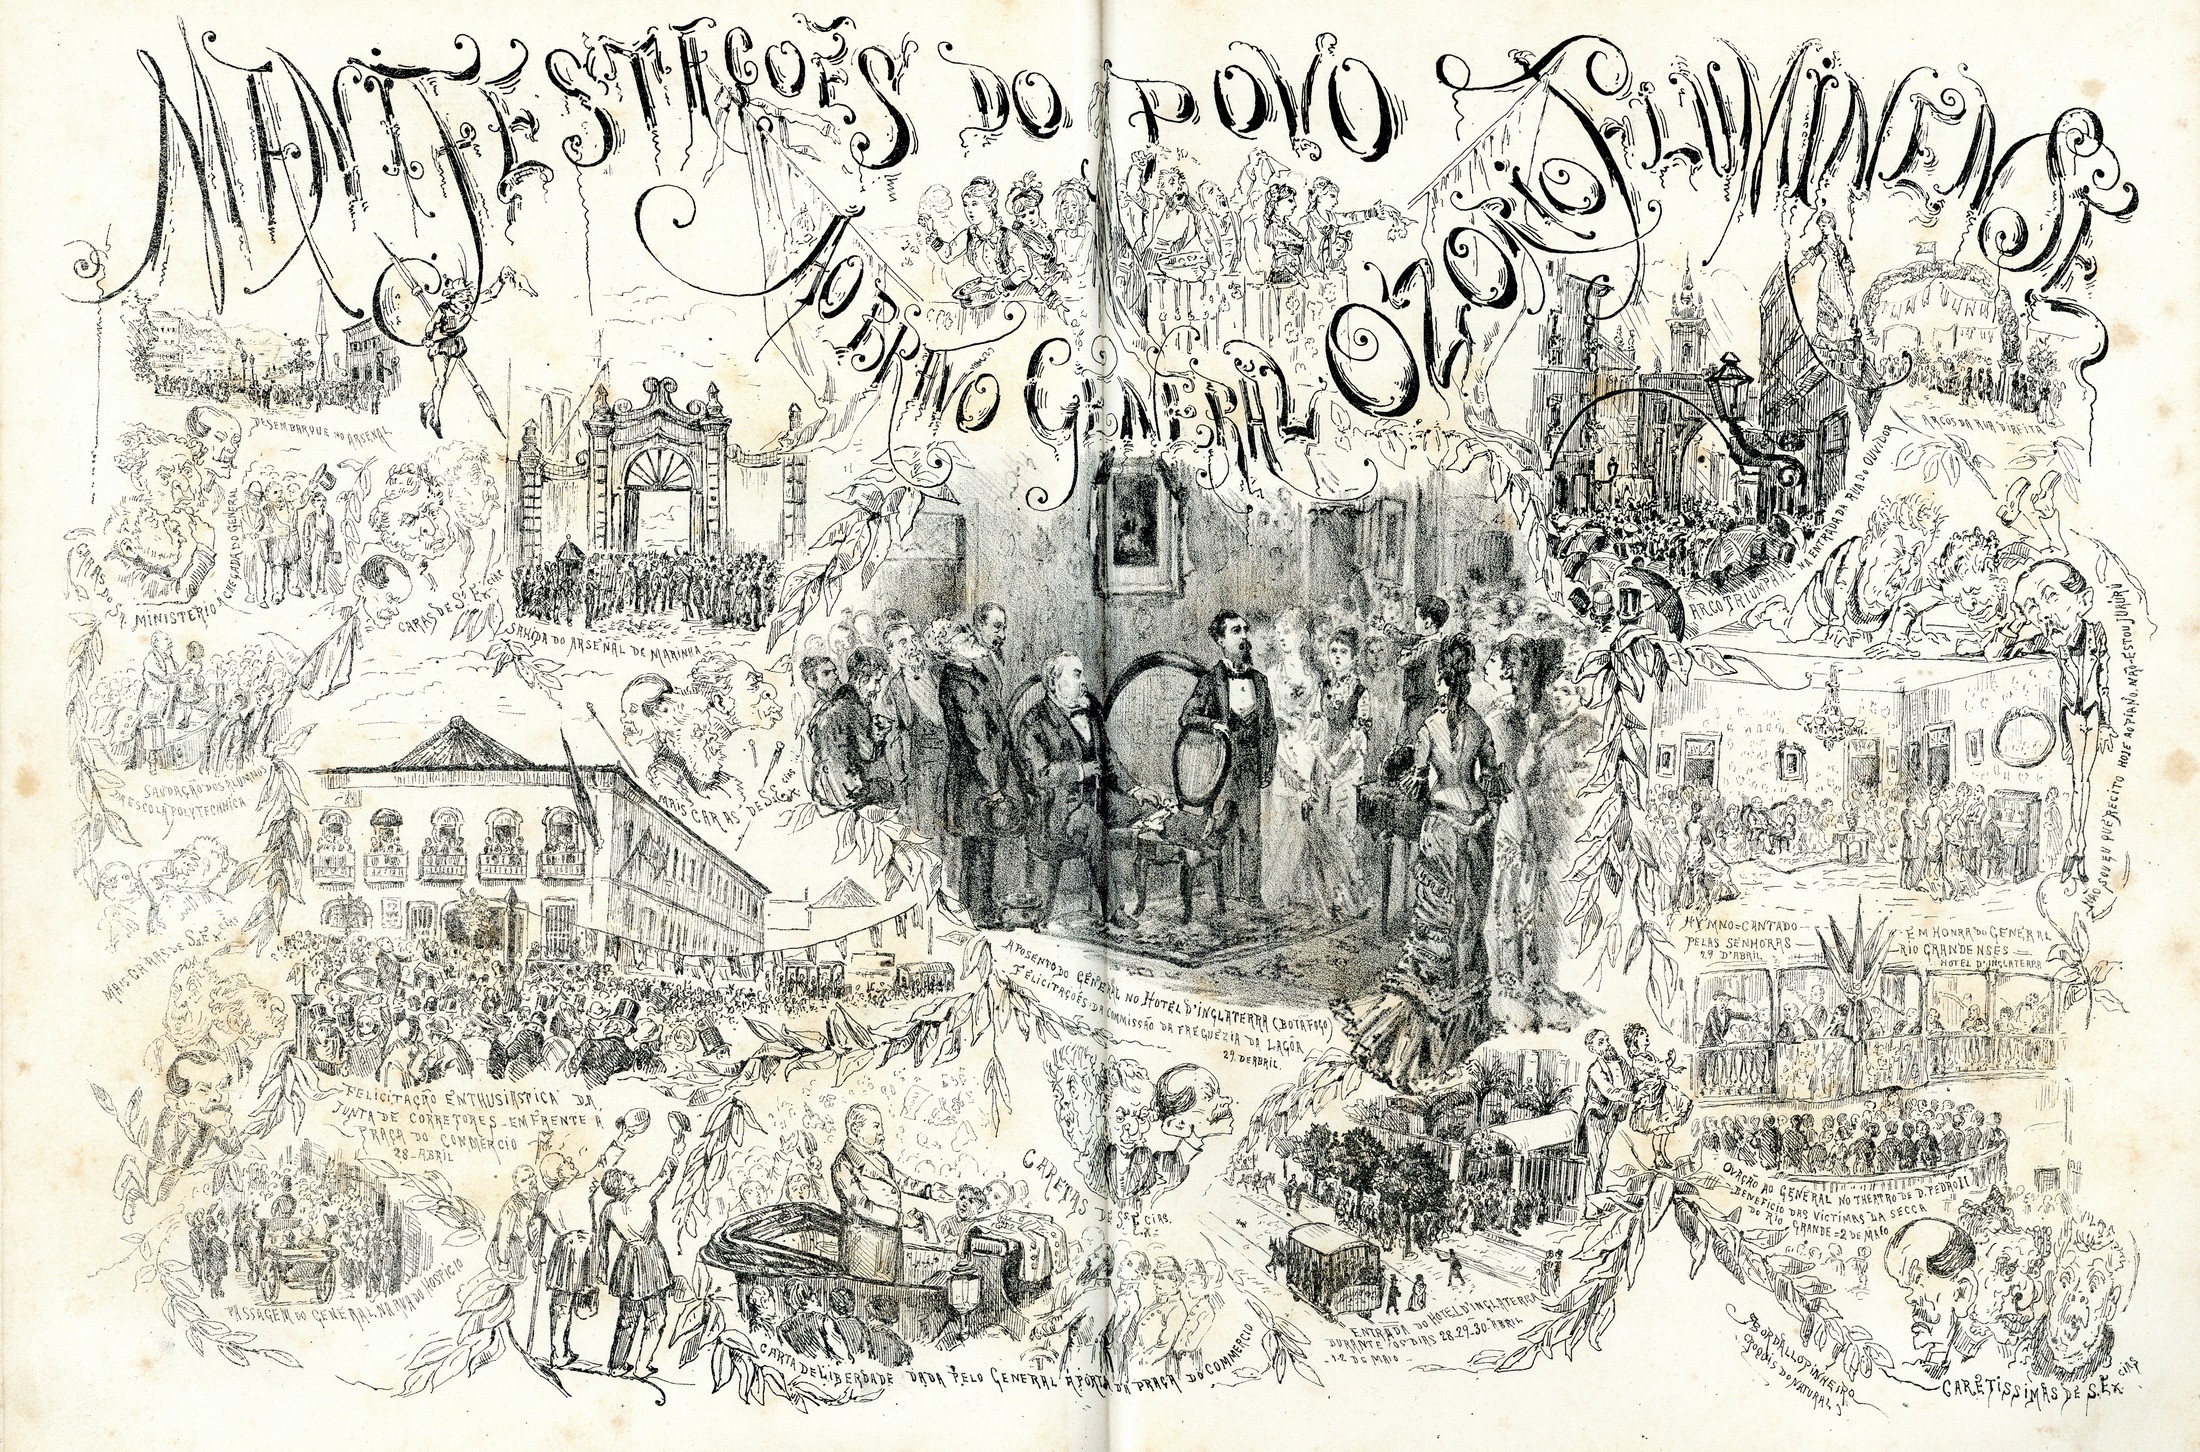 MANIFESTAÇÕES DO POVO FLUMINENSE
AO BRAVO GENERAL OZORIO
DESEMBARQUE NO ARSENAL
CHEGADA DO GENERAL
CARAS DO Sr. MINISTERIO
CARAS DE Ss. Ex.cias
SAHIDA DO ARSENAL DE MARINHA
SAUDAÇÃO DOS ALUMNOS
DA ESCOLA POLYTECHNICA
MAIS CARAS DE S.S. Ex.cias
MAIS CARAS DE S.S. Ex.cias
FELICITAÇÃO ENTHUSIASTICA DA
JUNTA DE CORRETORES - EM FRENTE A
PRAÇA DO COMMERCIO
28 - ABRIL
PASSAGEM DO GENERAL NA RUA DO HOSPICIO
CARTA DE LIBERDADE DADA PELO GENERAL A PORTA DA PRAÇA DO COMMERCIO
APOSENTO DO GENERAL NO HOTEL D'INGLATERRA (BOTAFOGO)
FELICITAÇÕES DA COMMISSÃO DA FREGUEZIA DA LAGOA
29. DE ABRIL.
CARETAS DE Ss. Ex.cias.
ENTRADA DO HOTEL D'INGLATERRA
DURANTE OS DIAS 28-29-30-ABRIL
-1-2 DE MAIO-
ARCOS DA RUA DIREITA
ARCO TRIUMPHAL NA ENTRADA DA RUA DO OUVIDOR
NÃO SOU EU QUE RECITO HOJE AO PIANO. NÃO ESTOU JURURU
HYMNO = CANTADO
PELAS SENHORAS
29 D'ABRIL
EM HONRA DO GENERAL
RIO GRANDENSES -
HOTEL D'INGLATERRA
OVAÇÃO AO GENERAL NO THEATRO DE D. PEDRO II
- BENEFICIO DAS VICTIMAS DA SECCA
DO RIO GRANDE = 2 DE MAIO
BORDALLO PINHEIRO
CARETISSIMAS DE S. Ex.cias